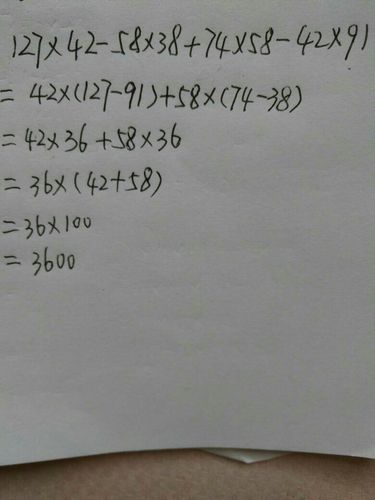 127×42-58×38+74×58-42×91
= 42×(127-91)+58×(74-38)
= 42×36+58×36
= 36×(42+58)
= 36×100
= 3600